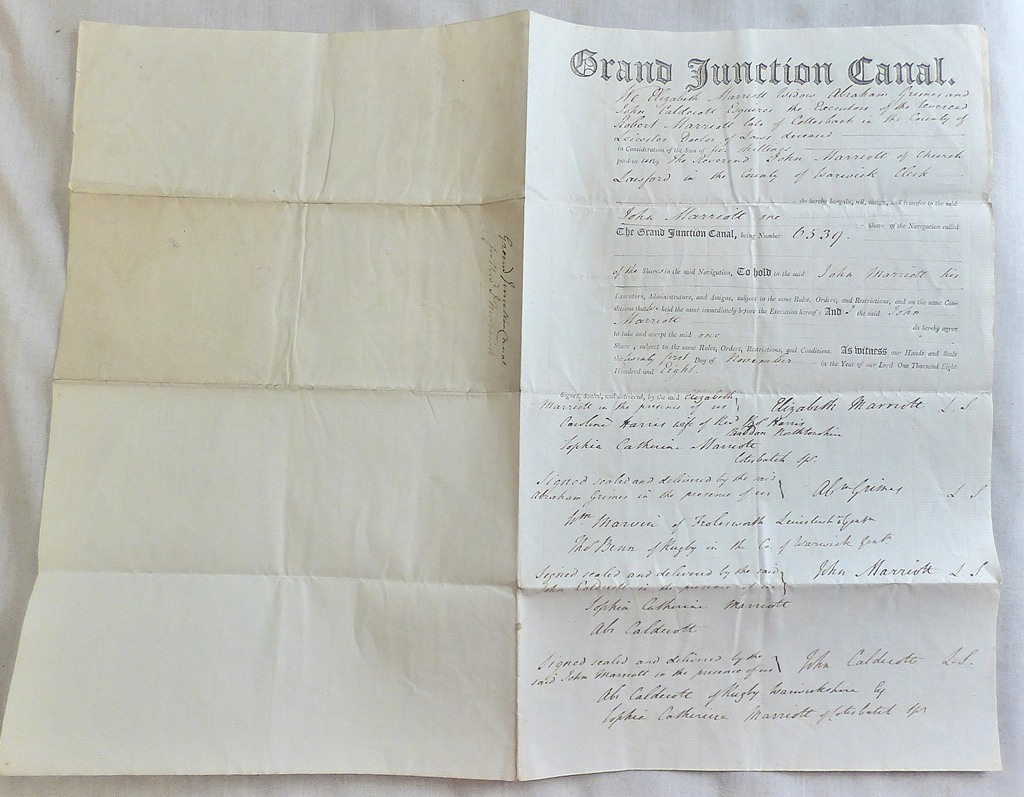 Grand Junction Canal.
We Elizabeth Marriott Widow Abraham Grimes and
John Caldecott Esquires the Executors of the Reverend
Robert Marriott late of Cottesbach in the County of
Leicester Doctor of Laws deceased
in Consideration of the Sum of five shillings
paid to us by The Reverend John Marriott of Church
Lawford in the County of Warwick Clerk
do hereby bargain, sell, assign, and transfer to the said
John Marriott one
Share of the Navigation called
The Grand Junction Canal, being Number 6539.
of the Shares in the said Navigation, To hold to the said John Marriott his
Executors, Administrators, and Assigns, subject to the same Rules, Orders, and Restrictions, and on the same Con-
ditions that held the same immediately before the Execution hereof: And I the said John
Marriott do hereby agree
to take and accept the said one
Share, subject to the same Rules, Orders, Restrictions, and Conditions. As witness our Hands and Seals
the twenty first Day of November in the Year of our Lord One Thousand Eight
Hundred and Eight.
Signed, sealed, and delivered, by the said Elizabeth
Marriott in the presence of us
Elizabeth Marriott L S
Caroline Harris wife of Revd Harris
Northtonshire
Sophia Catherine Marriott
Cotesbatch
Signed sealed and delivered by the said
Abraham Grimes in the presence of us
Abm Grimes L S
Wm Marvin of Frolesworth
Thos Benn of Rugby in the Co. of Warwick Gent
Signed sealed and delivered by the said
John Caldecott in the presence of us
John Marriott L S
Sophia Catherine Marriott
Abr Caldecott
Signed sealed and delivered by the
said John Marriott in the presence of us
John Caldecott L.S.
Abr Caldecott of Rugby Warwickshire
Sophia Catherine Marriott of Cotesbatch
Grand Junction Canal
for Revd J Marriott